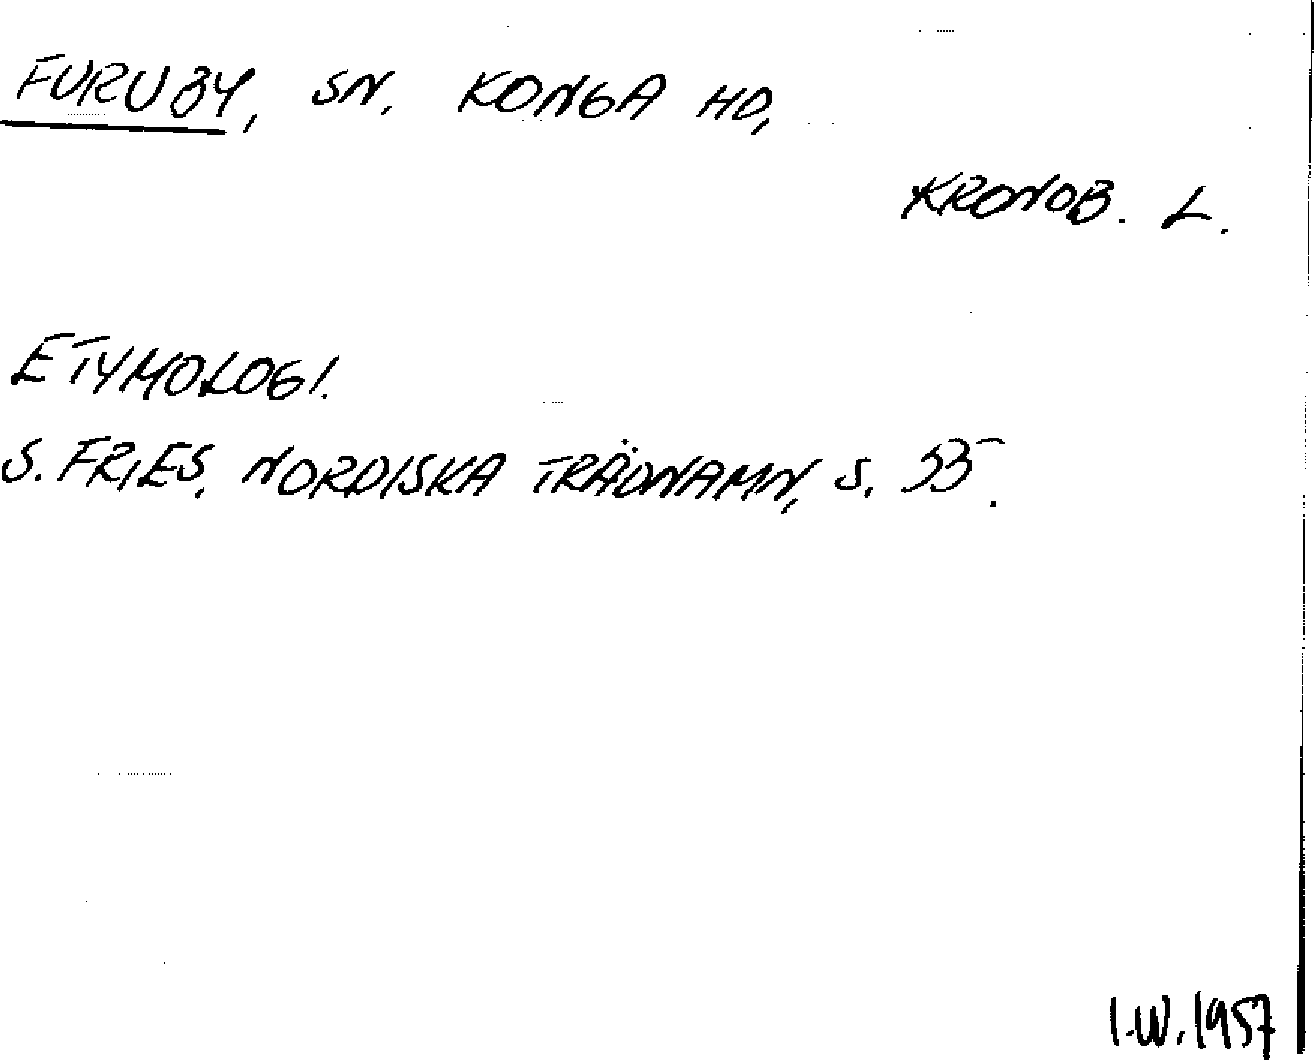 FURUBY, SN. KONGA HD,
KRONOB. L.
ETYMOLOGI.
S. FRIES, NORDISKA TRÄDNAMN, S.
I.W. 1957